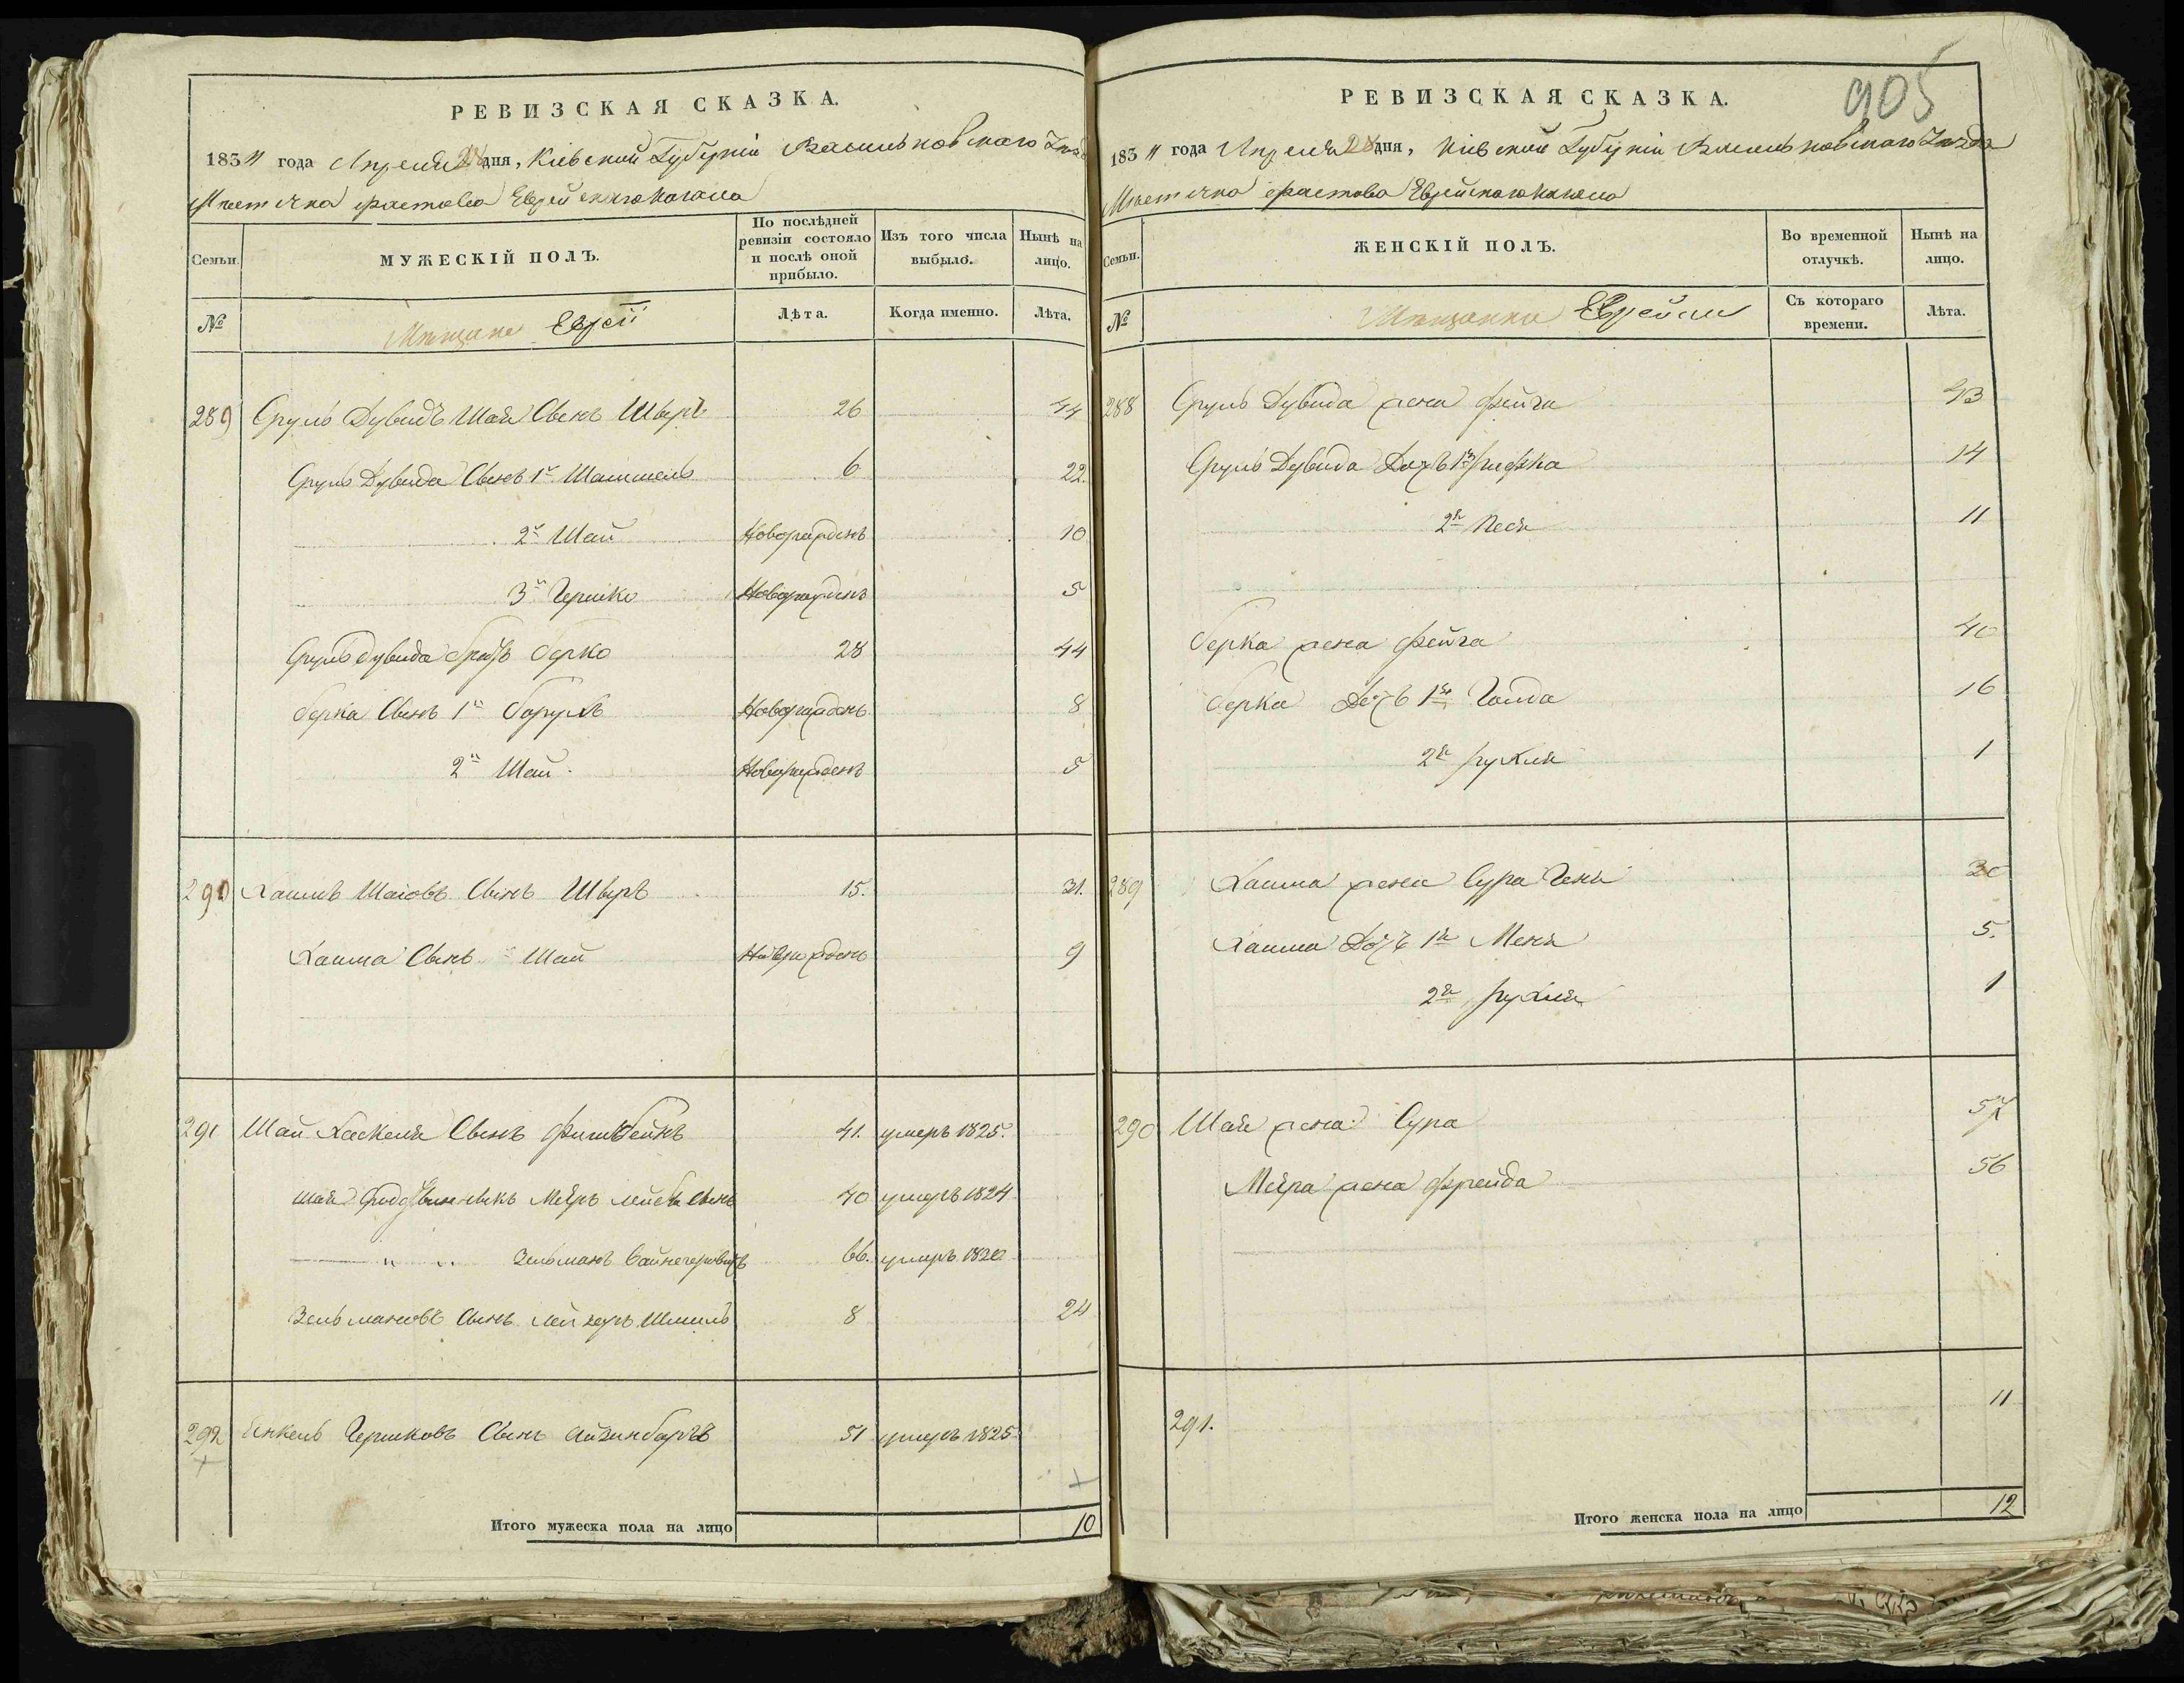 РЕВИЗСКАЯ СКАЗКА.
1834 года Апреля 28 дня, Кіевской Губерніи Васильковского Уезда
Местечка Фастова Еврейского Кагала
Семьи.
МУЖЕСКІЙ ПОЛЪ.
По послѣдней ревизіи состояло и послѣ оной прибыло.
Изъ того числа выбыло.
Нынѣ на лицо.
№
Мещане Евреи
Лѣта.
Когда именно.
Лѣта.
289 Сруль Дувидъ Шаи Сынъ Швиръ 26 44
Сруль Дувида Сынъ 1й 6 22.
2й Шая Новорожденъ 10
3й Гершко Новорожденъ 5
Сруль Дувида братъ Берко 28 44
Берка Сынъ 1й Борухъ Новорожденъ 8
2й Шая Новорожденъ 5
290 Хаимъ Шаіовъ Сынъ Швиръ 15. 31.
Хаима Сынъ Шая Новорожденъ 9
291 Шая Хаскеля Сынъ 41. умеръ 1825.
Шаи Мееръ Лейба Сынъ 40 умеръ 1824
" " Зельманъ 66. умеръ 1820
Зельмановъ Сынъ Шмиль 8 24
292 Янкель Гершковъ Сынъ Айзинбаргъ 51 умеръ 1825
Итого мужеска пола на лицо 10
905
РЕВИЗСКАЯ СКАЗКА.
1834 года Апреля 28 дня, Кіевской Губерніи Васильковского Уезда
Местечка Фастова Еврейского Кагала
Семьи.
ЖЕНСКІЙ ПОЛЪ.
Во временной отлучкѣ.
Нынѣ на лицо.
№
Мещанки Еврейки
Съ котораго времени.
Лѣта.
288 Сруль Дувида жена Фейга 43
Сруль Дувида Дочь 1я Рифка 14
2я Песя 11
Берка жена Фейга 40
Берка Дочь 1я Голда 16
2я Рухля 1
289 Хаима жена Сура Геня 30
Хаима Дочь 1я Меня 5.
2я Рухля 1
290 Шаи жена Сура 57
Меера жена Фрейда 56
291. 11
Итого женска пола на лицо 12